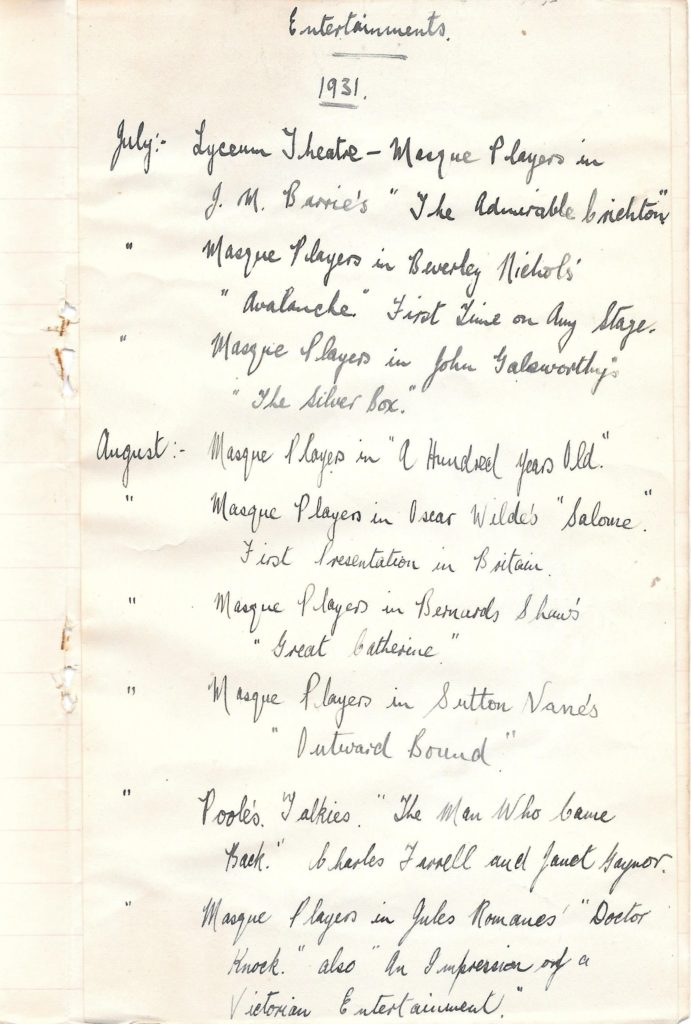 Entertainments.
1931.
July:- Lyceum Theatre - Masque Players in
J. M. Barrie's "The Admirable Crichton"
" Masque Players in Beverley Nichols'
"Avalanche." First Time on Any Stage.
" Masque Players in John Galsworthy's
"The Silver Box."
August:- Masque Players in "A Hundred Years Old".
" Masque Players in Oscar Wilde's "Salome".
First Presentation in Britain.
" Masque Players in Bernards Shaw's
"Great Catherine"
" Masque Players in Sutton Vane's
"Outward Bound"
" Poole's. Talkies. "The Man Who Came
Back." Charles Farrell and Janet Gaynor.
" Masque Players in Jules Romanes' "Doctor
Knock." also "An Impression of a
Victorian Entertainment."